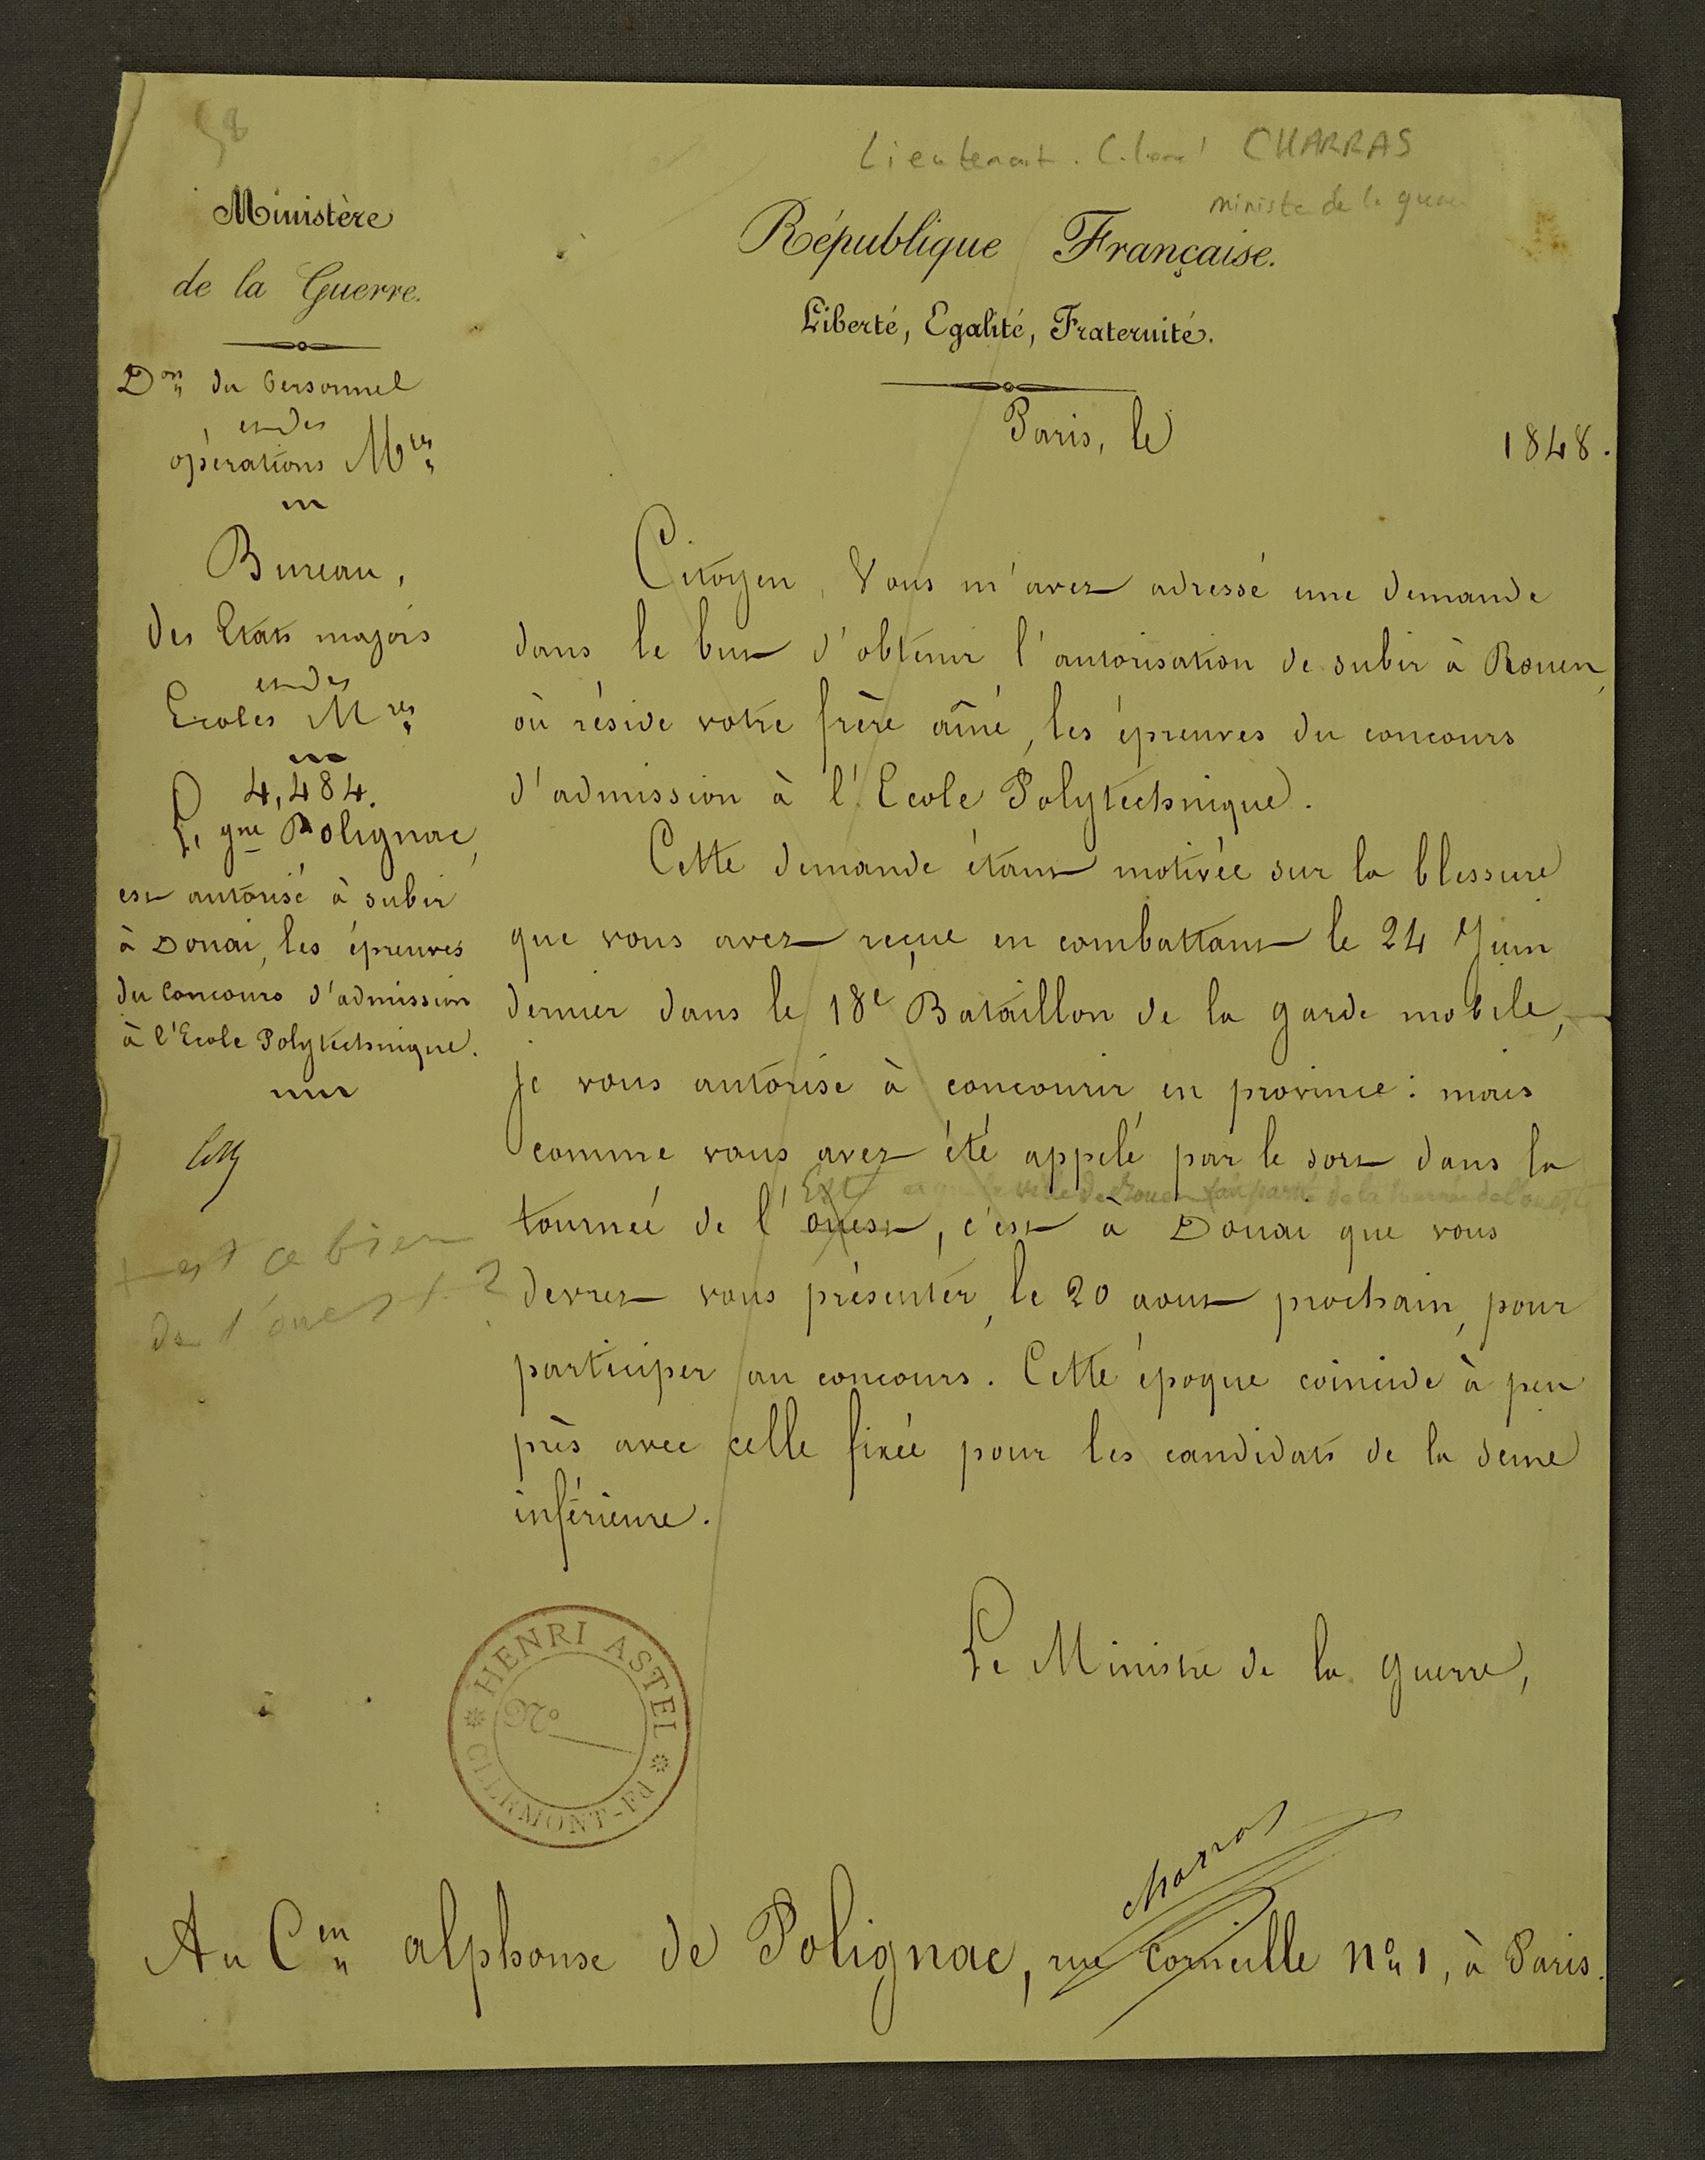 58
Lieutenant. Colonel CHARRAS
ministre de la guerre
Ministère
de la Guerre.
République Française.
Liberté, Egalité, Fraternité.
Paris, le 1848.
Don du Personnel
et des
opérations Mres
Bureau,
des Etats majors
et des
Ecoles Mres
4,484.
Le gne Polignac,
est autorisé à subir
à Douai, les épreuves
du Concours d'admission
à l'Ecole Polytechnique.
+ est ce bien
de l'ouest ?
Citoyen, Vous m'avez adressé une demande
dans le but d'obtenir l'autorisation de subir à Rouen,
où réside votre frère aîné, les épreuves du concours
d'admission à l'Ecole Polytechnique.
Cette demande étant motivée sur la blessure
que vous avez reçue en combattant le 24 Juin
dernier dans le 18e Bataillon de la garde mobile,
je vous autorise à concourir en province : mais
comme vous avez été appelé par le sort dans la
Est et que la ville de Rouen fait partie de la tournée de l'ouest
tournée de l'ouest, c'est à Douai que vous
devrez vous présenter, le 20 aout prochain, pour
participer au concours. Cette époque coincide à peu
près avec celle fixée pour les candidats de la Seine
inférieure.
Le Ministre de la guerre,
HENRI ASTEL
No
CLERMONT-Fd
Charras
Au Cen alphonse de Polignac, rue Corneille No 1, à Paris.